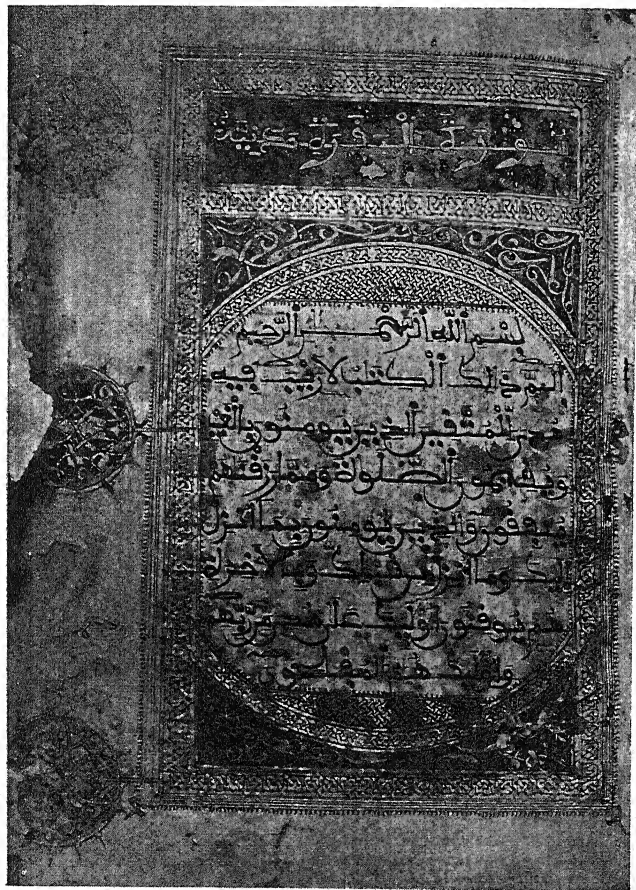 سورة البقرة مدنية
بسم الله الرحمن الرحيم
الم ذلك الكتب لا ريب فيه
هدى للمتقين الذين يومنون بالغيب
ويقيمون الصلوة ومما رزقنهم
ينفقون والذين يومنون بما أنزل
إليك وما أنزل من قبلك وبالأخرة
هم يوقنون أوليك على هدى من ربهم
وأوليك هم المفلحون